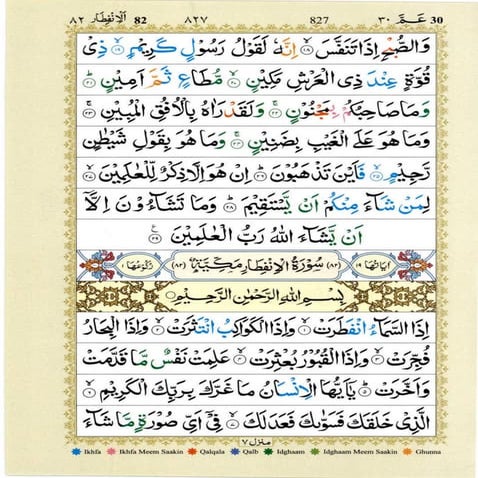 ٨٢ اَلْاِنْفِطَار 82 ٨٢٧ 827 عَمَّ ٣٠ 30
وَالصُّبْحِ اِذَا تَنَفَّسَ ۙ﴿۱۸﴾ اِنَّهٗ لَقَوْلُ رَسُوْلٍ كَرِيْمٍ ۙ﴿۱۹﴾ ذِيْ
قُوَّةٍ عِنْدَ ذِي الْعَرْشِ مَكِيْنٍ ۙ﴿۲۰﴾ مُّطَاعٍ ثَمَّ اَمِيْنٍ ؕ﴿۲۱﴾
وَمَا صَاحِبُكُمْ بِمَجْنُوْنٍ ۚ﴿۲۲﴾ وَلَقَدْ رَاٰهُ بِالْاُفُقِ الْمُبِيْنِ ۚ﴿۲۳﴾
وَمَا هُوَ عَلَى الْغَيْبِ بِضَنِيْنٍ ۚ﴿۲۴﴾ وَمَا هُوَ بِقَوْلِ شَيْطٰنٍ
رَّجِيْمٍ ۙ﴿۲۵﴾ فَاَيْنَ تَذْهَبُوْنَ ؕ﴿۲۶﴾ اِنْ هُوَ اِلَّا ذِكْرٌ لِّلْعٰلَمِيْنَ ۙ﴿۲۷﴾
لِمَنْ شَآءَ مِنْكُمْ اَنْ يَّسْتَقِيْمَ ؕ﴿۲۸﴾ وَمَا تَشَآءُوْنَ اِلَّاۤ
اَنْ يَّشَآءَ اللّٰهُ رَبُّ الْعٰلَمِيْنَ ﴿۲۹﴾
اٰيَاتُهَا ١٩ (٨٢) سُوْرَةُ الْاِنْفِطَارِ مَكِّيَّةٌ (٨٢) رُكُوْعُهَا ١
بِسْمِ اللّٰهِ الرَّحْمٰنِ الرَّحِيْمِ
اِذَا السَّمَآءُ انْفَطَرَتْ ۙ﴿۱﴾ وَاِذَا الْكَوَاكِبُ انْتَثَرَتْ ۙ﴿۲﴾ وَاِذَا الْبِحَارُ
فُجِّرَتْ ۙ﴿۳﴾ وَاِذَا الْقُبُوْرُ بُعْثِرَتْ ۙ﴿۴﴾ عَلِمَتْ نَفْسٌ مَّا قَدَّمَتْ
وَاَخَّرَتْ ؕ﴿۵﴾ يٰۤاَيُّهَا الْاِنْسَانُ مَا غَرَّكَ بِرَبِّكَ الْكَرِيْمِ ۙ﴿۶﴾
الَّذِيْ خَلَقَكَ فَسَوّٰىكَ فَعَدَلَكَ ۙ﴿۷﴾ فِيْۤ اَيِّ صُوْرَةٍ مَّا شَآءَ
منزل ٧
Ikhfa Ikhfa Meem Saakin Qalqala Qalb Idghaam Idghaam Meem Saakin Ghunna